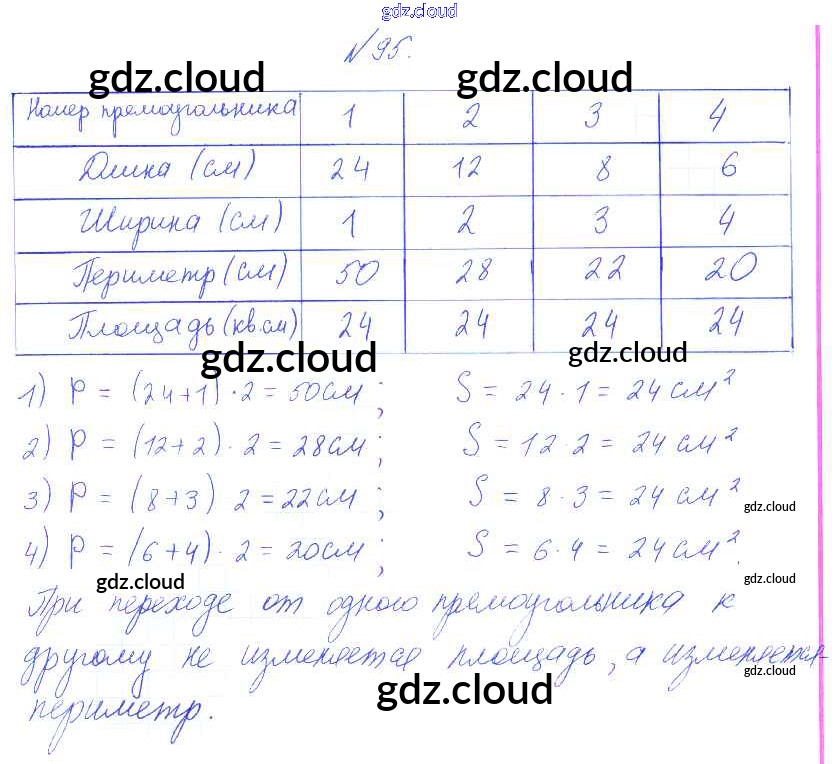 gdz.cloud
№95.
gdz.cloud gdz.cloud
Номер прямоугольника 1 2 3 4
Длина (см) 24 12 8 6
Ширина (см) 1 2 3 4
Периметр (см) 50 28 22 20
Площадь (кв.см) 24 24 24 24
gdz.cloud gdz.cloud
1) P = (24+1)·2 = 50см; S = 24·1 = 24 см²
2) P = (12+2)·2 = 28см; S = 12·2 = 24 см²
3) P = (8+3) 2 = 22см; S = 8·3 = 24 см²
gdz.cloud
4) P = (6+4)·2 = 20см; S = 6·4 = 24 см².
gdz.cloud gdz.cloud
При переходе от одного прямоугольника к
другому не изменяется площадь, а изменяется
gdz.cloud gdz.cloud
периметр.